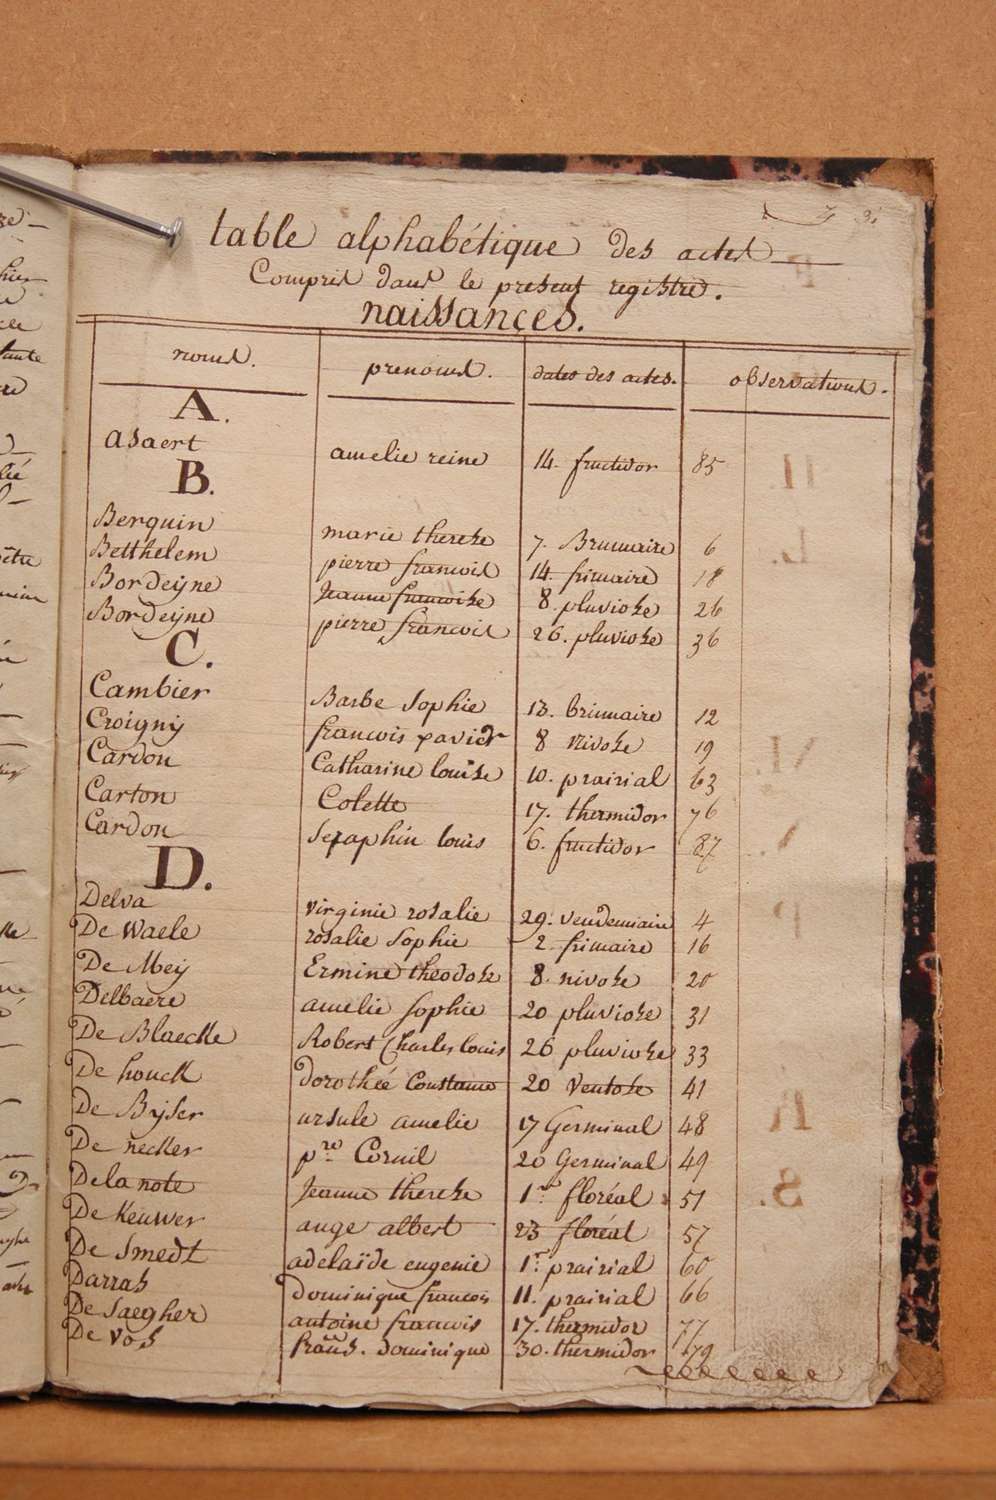 table alphabétique des actes
Compris dans le present registre.
naissances.
noms. prenoms. dates des actes. observations.
A.
asaert amelie reine 14. fructidor 85
B.
Berquin marie therese 7. Brumaire 6
Betthelem pierre francois 14. frimaire 18
Bordeijne Jeanne francoise 8. pluviose 26
Bordeijne pierre francois 26. pluviose 36
C.
Cambier Barbe Sophie 13. brumaire 12
Croignij francois xavier 8 nivose 19
Cardon Catharine louise 10. prairial 63
Carton Colette 17. thermidor 76
Cardon Seraphin louis 6. fructidor 87
D.
Delva virginie rosalie 29. vendemiaire 4
De Waele rosalie Sophie 2. frimaire 16
De Meij Ermine theodose 8. nivose 20
Delbaere amelie Sophie 20 pluviose 31
De Blaecke Robert Charles louis 26 pluviose 33
De houck dorothée Constance 20 Ventose 41
De Bijser ursule amelie 17 Germinal 48
De necker pre Corneil 20 Germinal 49
Dela note Jeanne therese 1er floréal 51
De Keuwer ange albert 23 floréal 57
De Smedt adelaïde eugenie 1r prairial 60
Darras dominique francois 11. prairial 66
De Saegher antoine francois 17. thermidor 77
De vos frans. dominique 30. thermidor 79